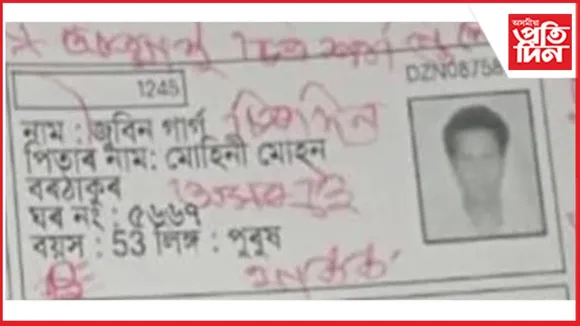 অসমীয়া
প্ৰতি
দিন
DZN08758
1245
নাম : জুবিন গাৰ্গ
চিৰদিন
পিতাৰ নাম: মোহিনী মোহন
বৰঠাকুৰ
ঘৰ নং : ৫৬৬৭
বয়স : 53 লিঙ্গ : পুৰুষ